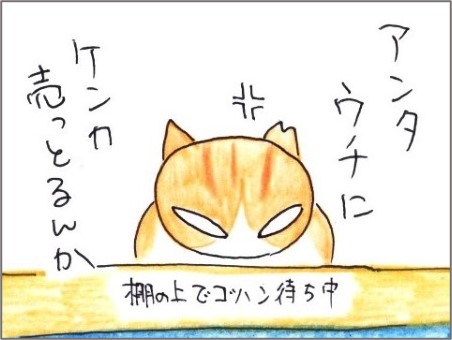 アンタ
ウチに
ケンカ
売っとるんか
棚の上でゴハン待ち中